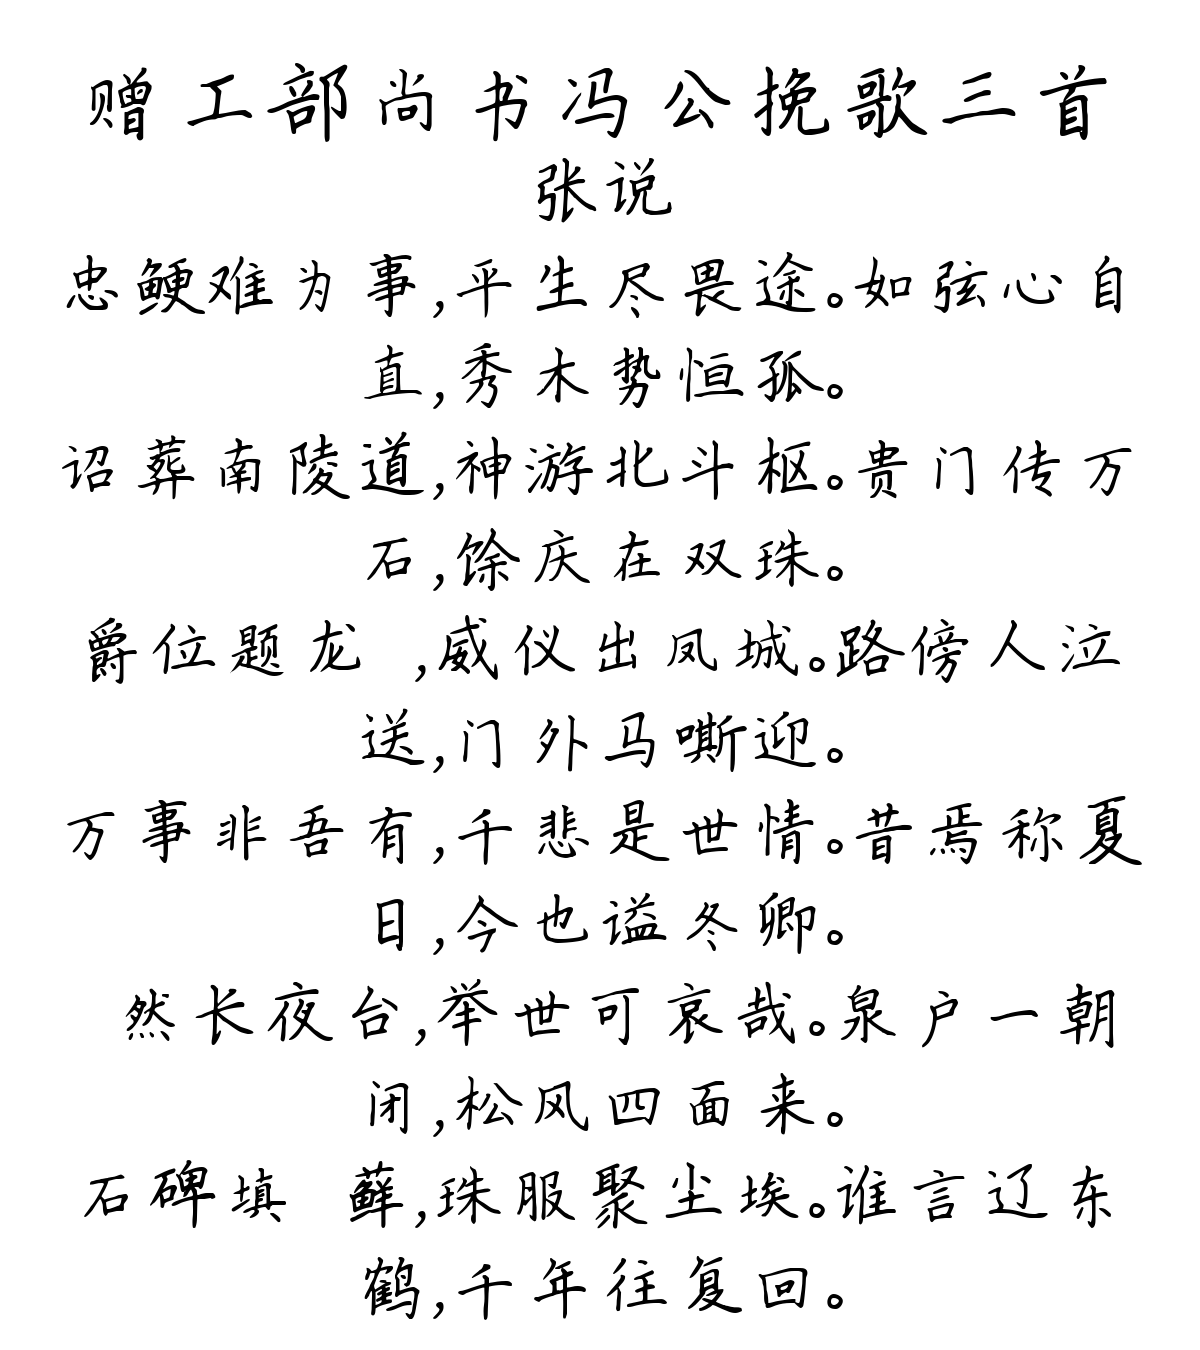 赠工部尚书冯公挽歌三首
张说
忠鲠难为事,平生尽畏途。如弦心自
直,秀木势恒孤。
诏葬南陵道,神游北斗枢。贵门传万
石,馀庆在双珠。
爵位题龙 ,威仪出凤城。路傍人泣
送,门外马嘶迎。
万事非吾有,千悲是世情。昔焉称夏
日,今也谥冬卿。
然长夜台,举世可哀哉。泉户一朝
闭,松风四面来。
石碑填 藓,珠服聚尘埃。谁言辽东
鹤,千年往复回。